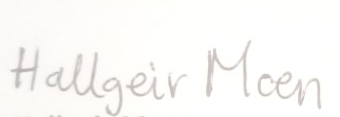 Hallgeir Moen